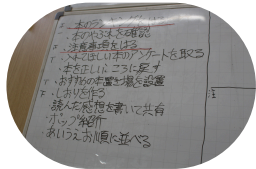 ・本の
・本のやぶれを確認
・注意事項をはる
・入れてほしい本のアンケートを取る
・本を正しいところに戻す
・おすすめの本置き場を設置
・しおりを作る
・読んだ感想を書いて共有
・ポップ紹介
・あいうえお順に並べる